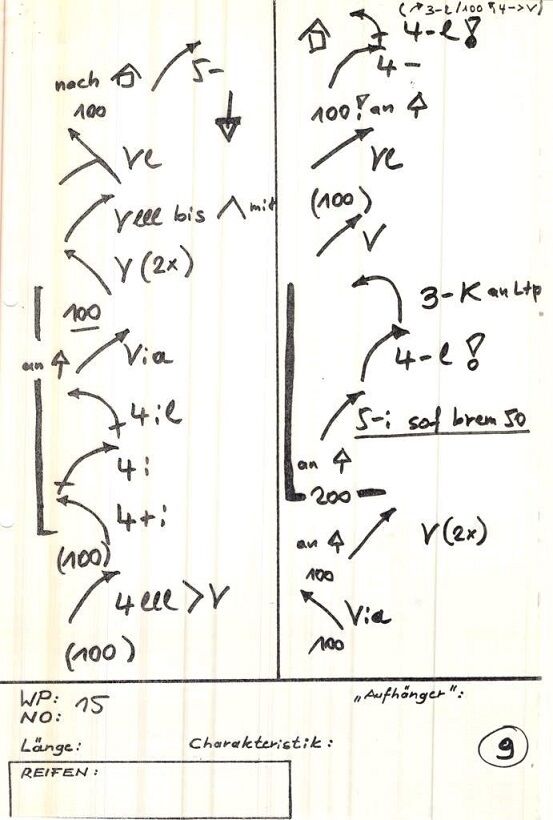 nach
100
5-
Ve
Veee bis
mit
V (2x)
100
an
Via
4ie
4i
4+i
(100)
4eee > V
(100)
(3-e/100 4->V)
4-e!
4-
100! an
Ve
(100)
V
3-K an Ltp
4-e!
5-i sof brem 50
an
200
an
V (2x)
100
Via
100
WP: 15
NO:
„Aufhänger":
Länge:
Charakteristik:
9
REIFEN: